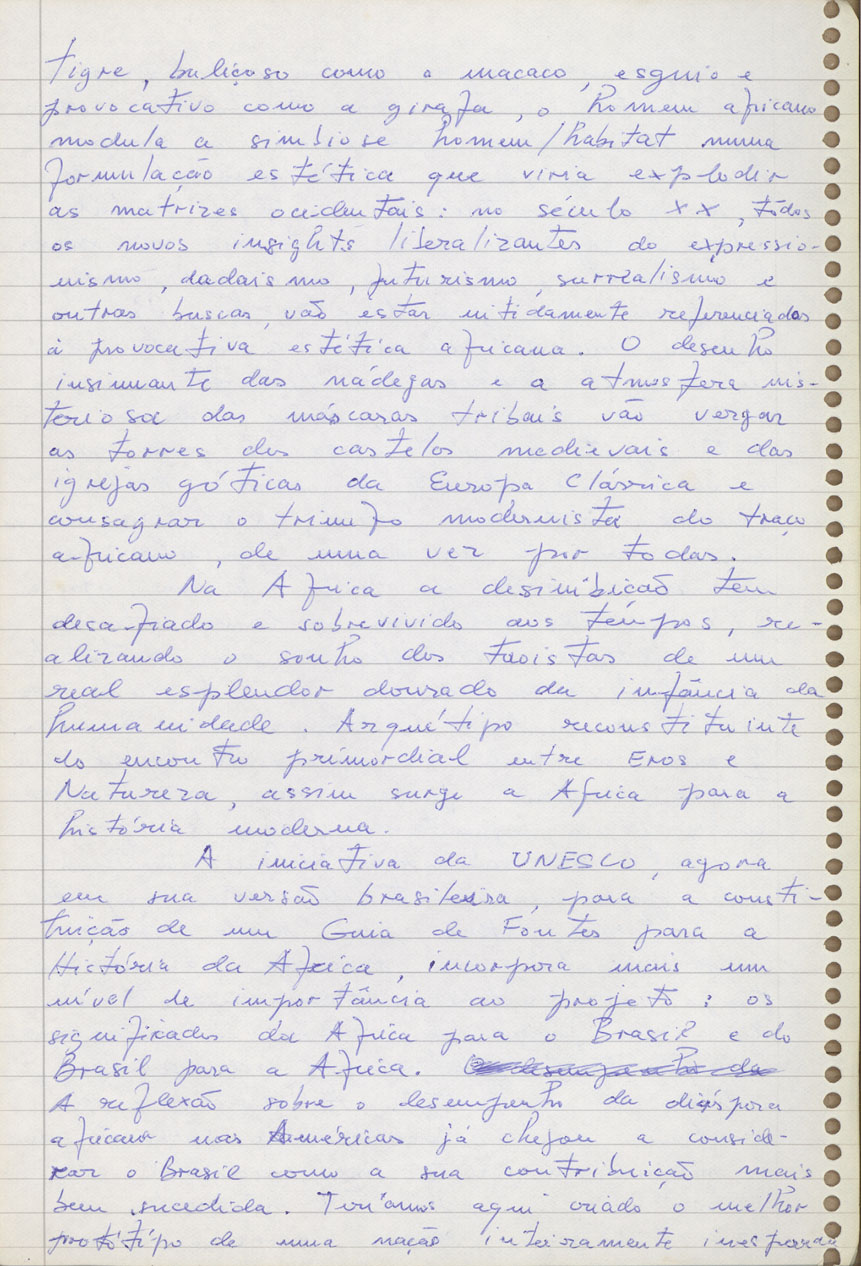 tigre, buliçoso como o macaco, esguio e
provocativo como a girafa, o homem africano
modula a simbiose homem/habitat numa
formulação estética que viria explodir
as matrizes ocidentais: no século XX, todos
os novos insights liberalizantes do expressio-
nismo, dadaismo, futurismo, surrealismo e
outras buscas, vão estar nitidamente referenciados
à provocativa estética africana. O desenho
insinuante das nádegas e a atmosfera mis-
teriosa das máscaras tribais vão vergar
as torres dos castelos medievais e das
igrejas góticas da Europa Clássica e
consagrar o triunfo modernista do traço
africano, de uma vez por todas.
Na Africa a desinibição tem
desafiado e sobrevivido aos tempos, re-
alizando o sonho dos taoistas de um
real esplendor dourado da infância da
humanidade. Arquétipo reconstituinte
do encontro primordial entre Eros e
Natureza, assim surge a Africa para a
história moderna.
A iniciativa da UNESCO, agora
em sua versão brasileira, para a consti-
tuição de um Guia de Fontes para a
História da Africa, incorpora mais um
nível de importância ao projeto: os
significados da Africa para o Brasil e do
Brasil para a Africa.
A reflexão sobre o desempenho da diáspora
africana nas Américas já chegou a conside-
rar o Brasil como a sua contribuição mais
bem sucedida. Teríamos aqui criado o melhor
protótipo de uma nação inteiramente inesperada